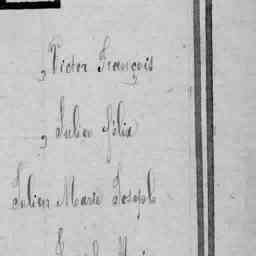 , Victor François
, Julien Félix
Julien Marie Joseph